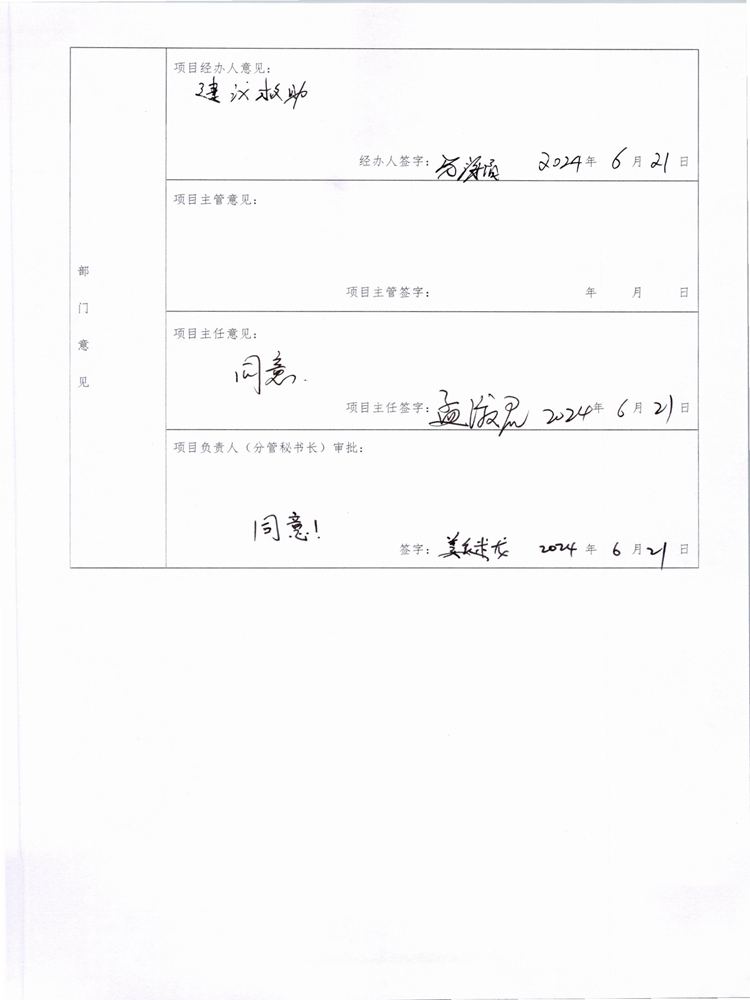 部门意见
项目经办人意见:
建议救助
经办人签字: 2024年 6月21日
项目主管意见:
项目主管签字: 年 月 日
项目主任意见:
同意.
项目主任签字: 孟 2024年 6月21日
项目负责人（分管秘书长）审批:
同意!
签字: 姜继龙 2024年 6月21日